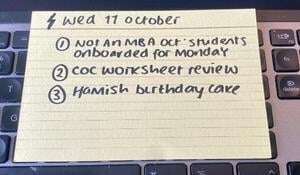 Wed 17 October
① Not An MBA Oct: students
onboarded for Monday
② COC worksheet review
③ Hamish birthday cake